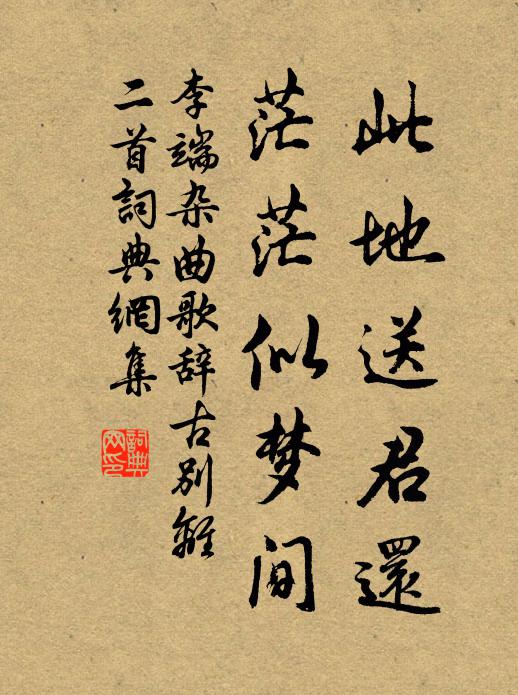 此地送君還
茫茫似梦間
李端杂曲歌辞古别離
二首詞典網集
詞典
网印